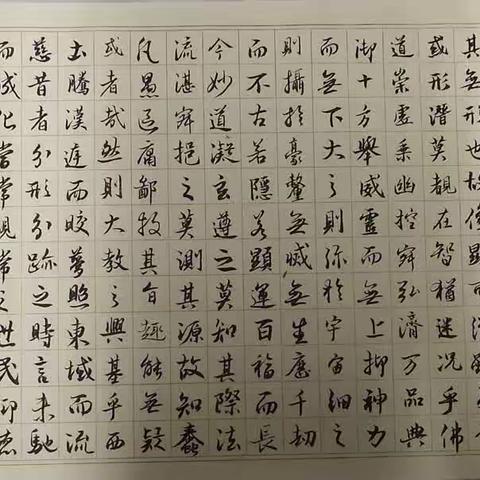 其無形也故像顯可
或形潛莫覩在智猶迷況乎佛
道崇虛乘幽控寂弘濟万品典
御十方舉威靈而無上抑神力
而無下大之則彌於宇宙細之
則攝於豪釐無滅無生歷千劫
而不古若隱若顯運百福而長
今妙道凝玄遵之莫知其際法
流湛寂挹之莫測其源故知蠢
凡愚區庸鄙投其旨趣能無疑
或者哉然則大教之興基乎西
土騰漢庭而皎夢照東域而流
慈昔者分形分跡之時言未馳
而成化當常現常之世民仰德